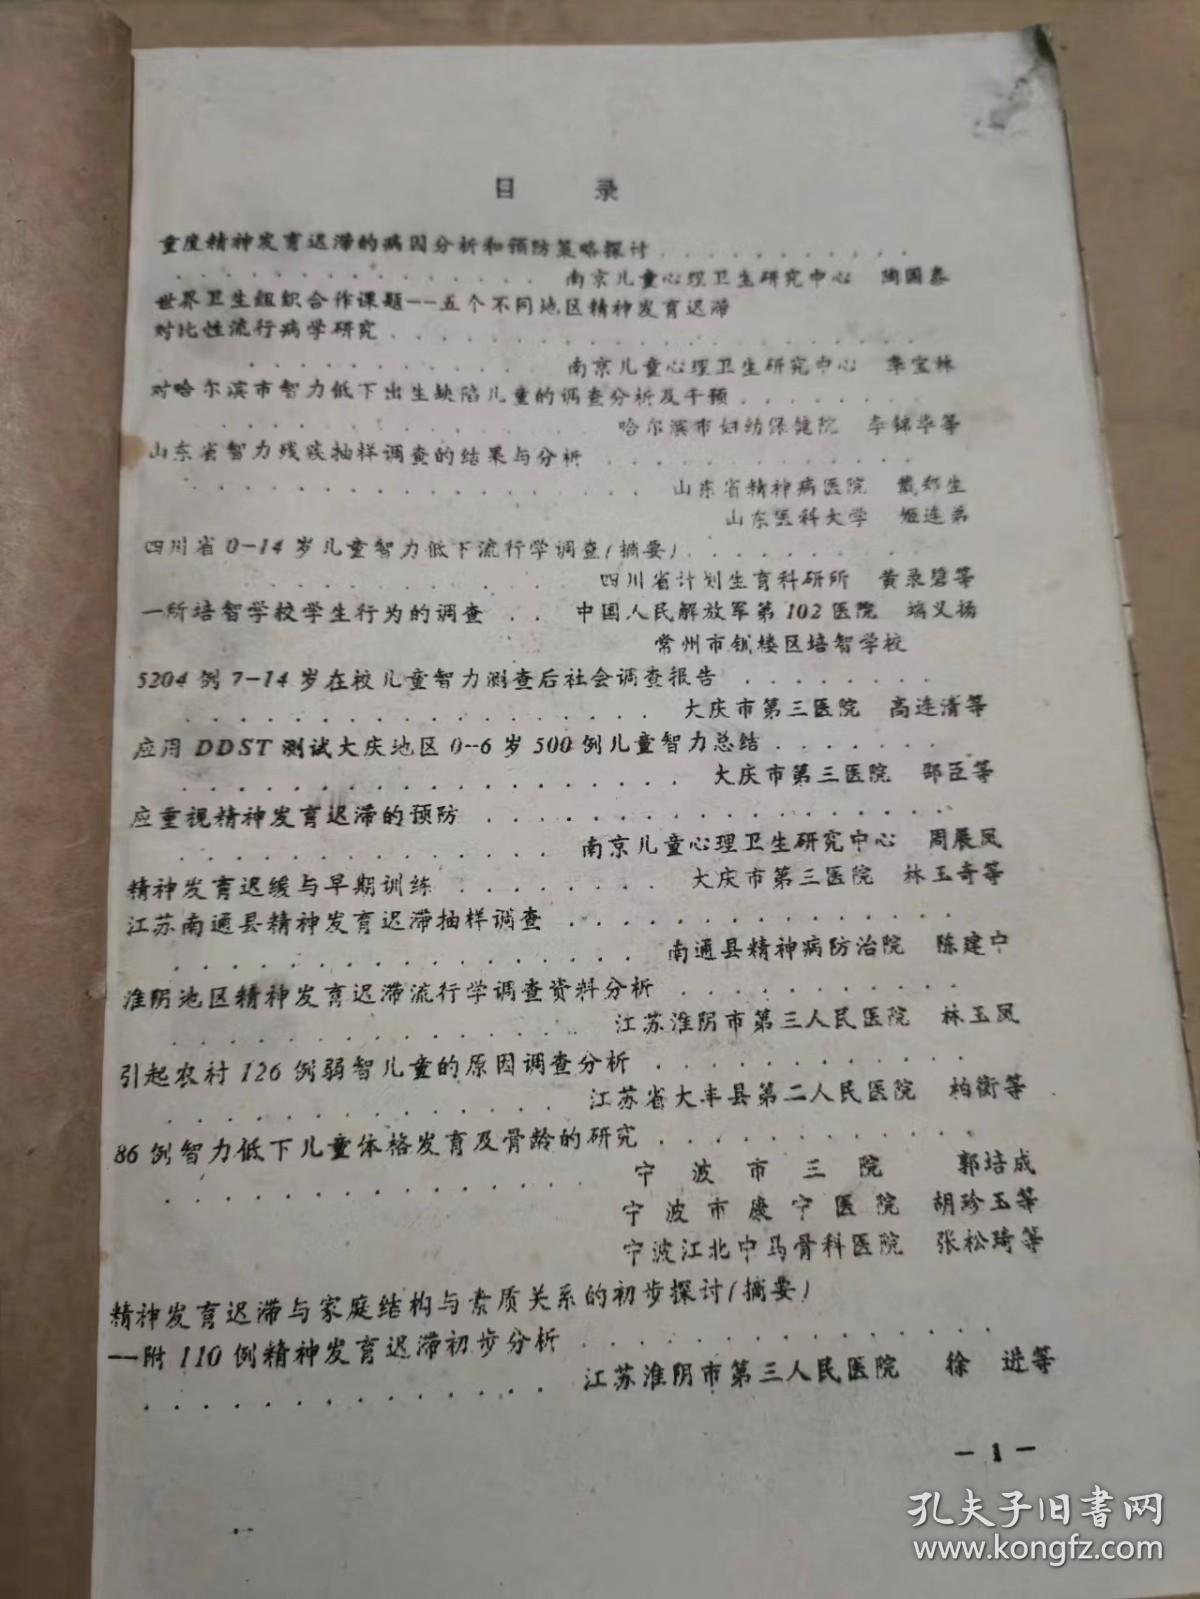 目 录
重度精神发育迟滞的病因分析和预防策略探讨
南京儿童心理卫生研究中心 陶国泰
世界卫生组织合作课题--五个不同地区精神发育迟滞
对比性流行病学研究
南京儿童心理卫生研究中心 李宝林
对哈尔滨市智力低下出生缺陷儿童的调查分析及干预
哈尔滨市妇幼保健院 李锦华等
山东省智力残疾抽样调查的结果与分析
山东省精神病医院 戴郑生
山东医科大学 姬连弟
四川省0-14岁儿童智力低下流行学调查(摘要)
四川省计划生育科研所 黄录碧等
一所培智学校学生行为的调查 . . 中国人民解放军第102医院 端义扬
常州市钟楼区培智学校
5204例7-14岁在校儿童智力测查后社会调查报告
大庆市第三医院 高连清等
应用DDST测试大庆地区0--6岁500例儿童智力总结
大庆市第三医院 邵臣等
应重视精神发育迟滞的预防
南京儿童心理卫生研究中心 周展凤
精神发育迟缓与早期训练 大庆市第三医院 林玉奇等
江苏南通县精神发育迟滞抽样调查
南通县精神病防治院 陈建中
淮阴地区精神发育迟滞流行学调查资料分析
江苏淮阴市第三人民医院 林玉凤
引起农村126例弱智儿童的原因调查分析
江苏省大丰县第二人民医院 柏衡等
86例智力低下儿童体格发育及骨龄的研究
宁波市三院 郭培成
宁波市康宁医院 胡珍玉等
宁波江北中马骨科医院 张松琦等
精神发育迟滞与家庭结构与素质关系的初步探讨(摘要)
—附110例精神发育迟滞初步分析
江苏淮阴市第三人民医院 徐 进等
- 1 -
孔夫子旧书网
www.kongfz.com